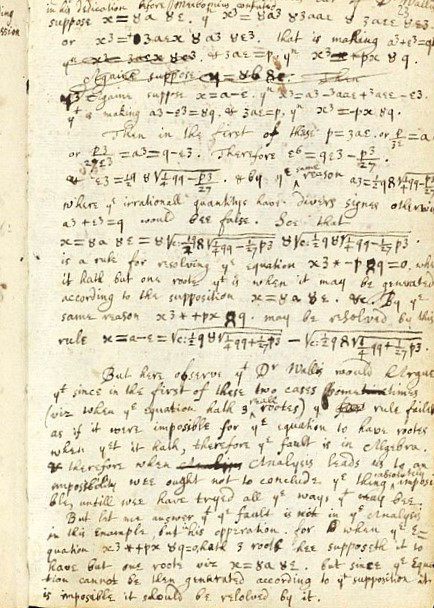 in his dedication before Meibomius confuted
suppose x=8a 8e. yn x3=8a3 83aae 8 3aee 8e3.
or x3= 3aex 8a3 8e3. that is making a3+e3=q
yn & 3ae=p, yn x3 px 8q.
Againe suppose Then
gaine suppose x=a-e. yn x3=a3-3aae+3aee-e3.
yt is making a3-e3=8q. & 3ae=p. yn x3=-px 8q.
Then in the first of these p=3ae. or p/3e=a
or p3/27e3=a3=q-e3. Therefore e6=qe3-p3/27.
& e3=½q 8√¼qq-p3/27. & by ye same reason a3=½q8√¼qq-p3/27
where ye irrationall quantitys have divers signes otherwis
a3+e3=q would bee false. Soe that
x=8a 8e=8√c:½q8√¼qq-1/27p3 8√c:½q8√¼qq-1/27p3.
is a rule for resolving ye equation x3*-p 8q=0, when
it hath but one roote yt is when it may be generated
according to the supposition x=8a 8e. &c. By ye
same reason x3*+px 8q. may be resolved by this
rule x=a-e=√c:½q 8√¼qq+1/27p3 - √c:½q8√¼qq+1/27p3.
But here observe yt Dr Wallis would Argue
yt since in the first of these two cases sometimes
(viz when ye equation hath 3 reall rootes) ye rule failes
as if it were impossible for ye equation to have rootes
when yet it hath, therefore ye fault is in Algebra.
& therefore when Analysis leads us to an
impossibility wee ought not to conclude ye thing absolutely impossi
ble, untill wee have tryed all ye ways yt may bee.
But let me answer yt ye fault is not in ye Analysis
in this Example but his operation, for when ye E=
quation x3*+px 8q=0 hath 3 roots hee supposeth it to
have but one roote viz x=8a 8e. but since ye Equa
tion cannot be then generated according to yt supposition it
is impossible it should be resolved by it.